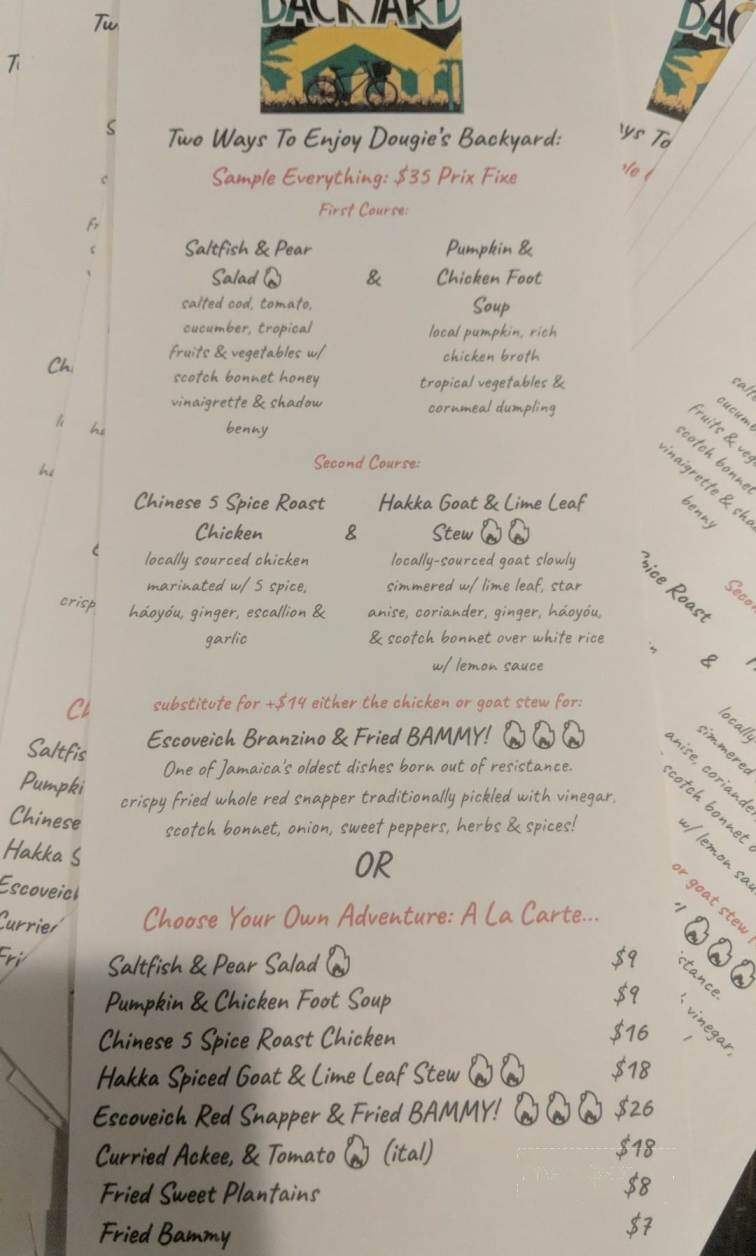 BACKYARD
Two Ways To Enjoy Dougie's Backyard:
Sample Everything: $35 Prix Fixe
First Course:
Saltfish & Pear
Salad
&
Pumpkin &
Chicken Foot
Soup
salted cod, tomato,
cucumber, tropical
fruits & vegetables w/
scotch bonnet honey
vinaigrette & shadow
benny
local pumpkin, rich
chicken broth
tropical vegetables &
cornmeal dumpling
Second Course:
Chinese 5 Spice Roast
Chicken
&
Hakka Goat & Lime Leaf
Stew
locally sourced chicken
marinated w/ 5 spice,
háoyóu, ginger, escallion &
garlic
locally-sourced goat slowly
simmered w/ lime leaf, star
anise, coriander, ginger, háoyóu,
& scotch bonnet over white rice
w/ lemon sauce
substitute for +$14 either the chicken or goat stew for:
Escoveich Branzino & Fried BAMMY!
One of Jamaica's oldest dishes born out of resistance.
crispy fried whole red snapper traditionally pickled with vinegar,
scotch bonnet, onion, sweet peppers, herbs & spices!
OR
Choose Your Own Adventure: A La Carte...
Saltfish & Pear Salad $9
Pumpkin & Chicken Foot Soup $9
Chinese 5 Spice Roast Chicken $16
Hakka Spiced Goat & Lime Leaf Stew $18
Escoveich Red Snapper & Fried BAMMY! $26
Curried Ackee, & Tomato (ital) $18
Fried Sweet Plantains $8
Fried Bammy $7